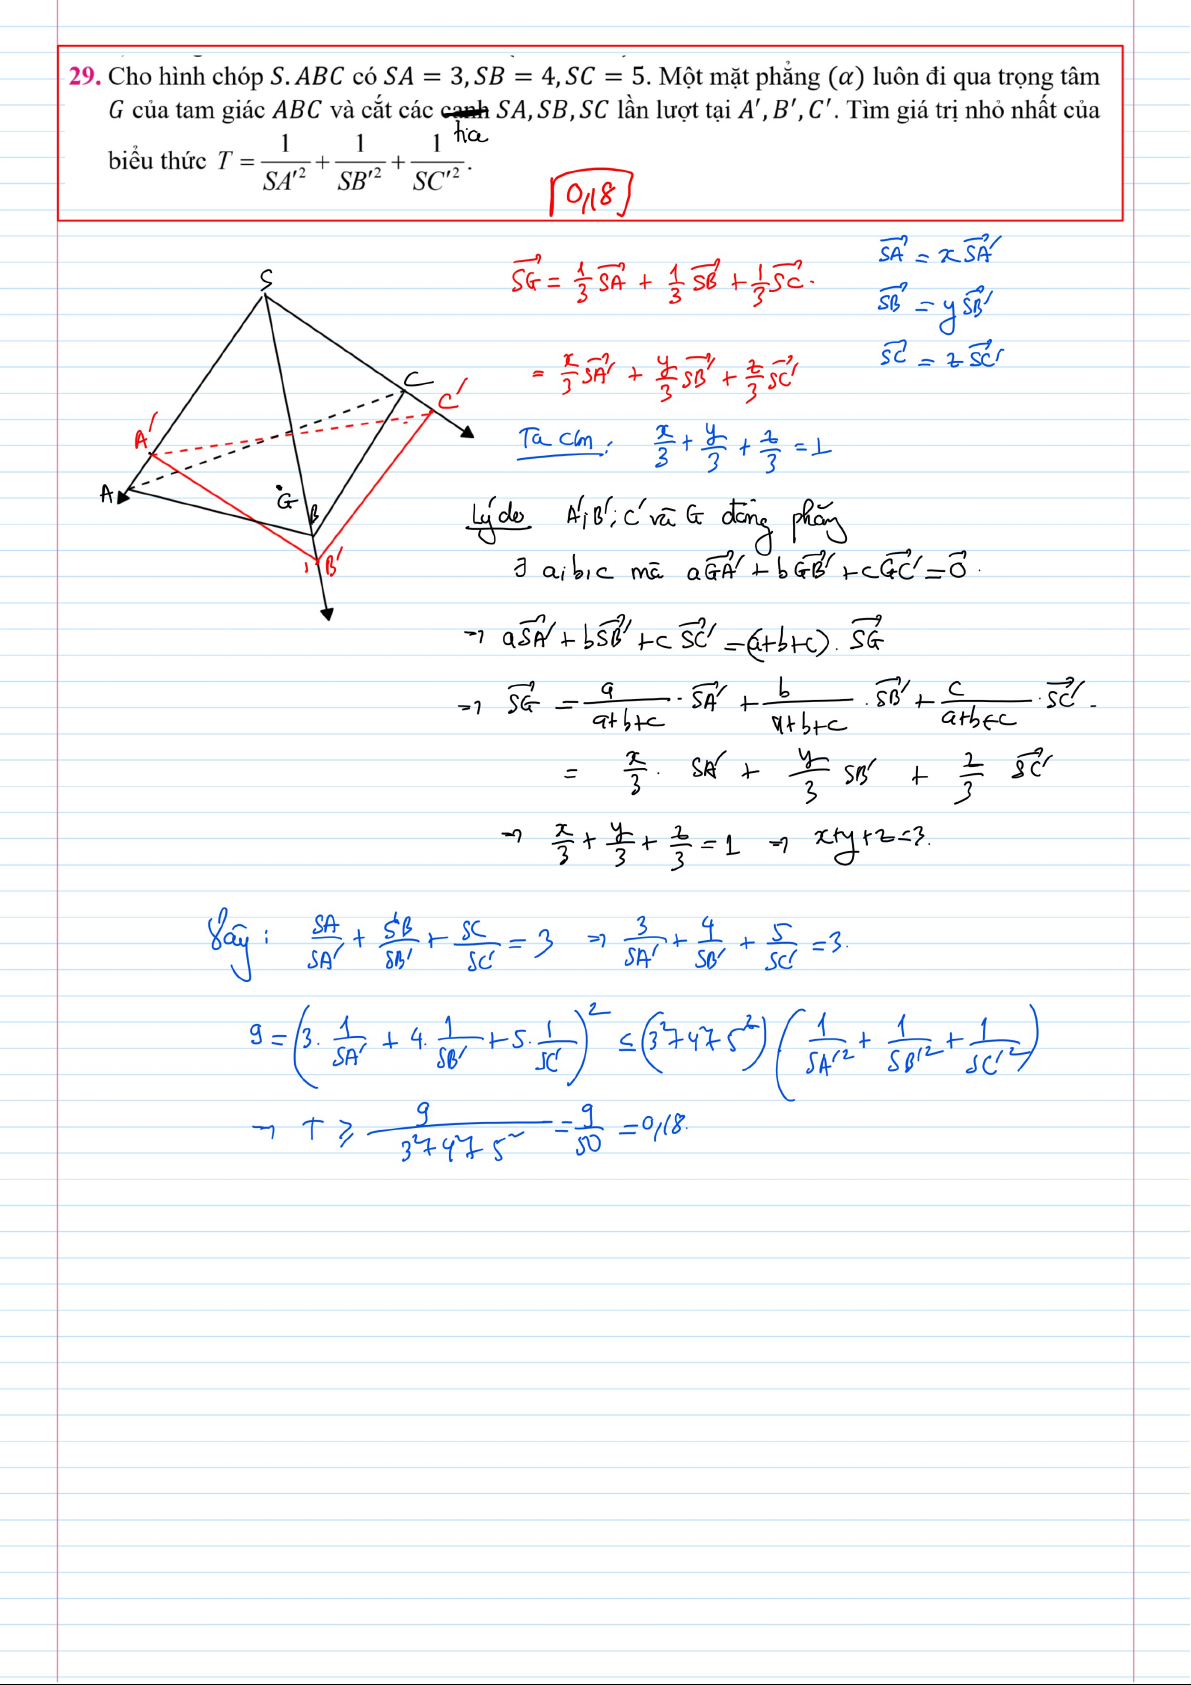 29. Cho hình chóp S.ABC có SA = 3, SB = 4, SC = 5. Một mặt phẳng (α) luôn đi qua trọng tâm
G của tam giác ABC và cắt các cạnh SA, SB, SC lần lượt tại A′, B′, C′. Tìm giá trị nhỏ nhất của
tia
biểu thức T = 1/SA′² + 1/SB′² + 1/SC′².
0,18
S
C
C′
A′
A
G
B
B′
SG→ = 1/3 SA→ + 1/3 SB→ + 1/3 SC→.
= x/3 SA′→ + y/3 SB′→ + z/3 SC′→
SA→ = x SA′→
SB→ = y SB′→
SC→ = z SC′→
Ta cm: x/3 + y/3 + z/3 = 1
Lý do A′; B′; C′ và G đồng phẳng
∃ a; b; c mà a GA′→ + b GB′→ + c GC′→ = 0→.
→ a SA′→ + b SB′→ + c SC′→ = (a+b+c). SG→
→ SG→ = a/(a+b+c) · SA′→ + b/(a+b+c) · SB′→ + c/(a+b+c) · SC′→
= x/3 · SA′ + y/3 SB′ + z/3 SC′→
→ x/3 + y/3 + z/3 = 1 → x+y+z=3.
Vậy: SA/SA′ + SB/SB′ + SC/SC′ = 3 → 3/SA′ + 4/SB′ + 5/SC′ = 3.
9 = (3. 1/SA′ + 4. 1/SB′ + 5. 1/SC′)² ≤ (3²+4²+5²)(1/SA′² + 1/SB′² + 1/SC′²)
→ T ≥ 9/(3²+4²+5²) = 9/50 = 0,18.